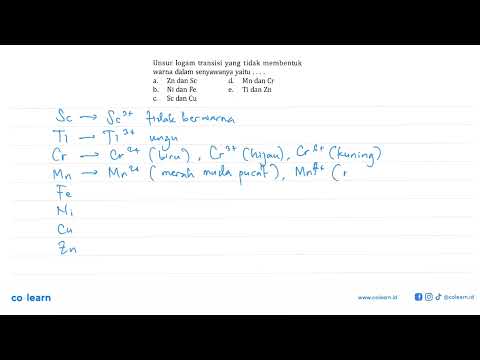 Unsur logam transisi yang tidak membentuk
warna dalam senyawanya yaitu . . . .
a. Zn dan Sc d. Mn dan Cr
b. Ni dan Fe e. Ti dan Zn
c. Sc dan Cu
Sc → Sc³⁺ tidak berwarna
Ti → Ti³⁺ ungu
Cr → Cr²⁺ (biru) , Cr³⁺ (hijau), Cr⁶⁺ (kuning)
Mn → Mn²⁺ (merah muda pucat) ,
Fe
Ni
Cu
Zn
co learn
www.colearn.id @colearn.id